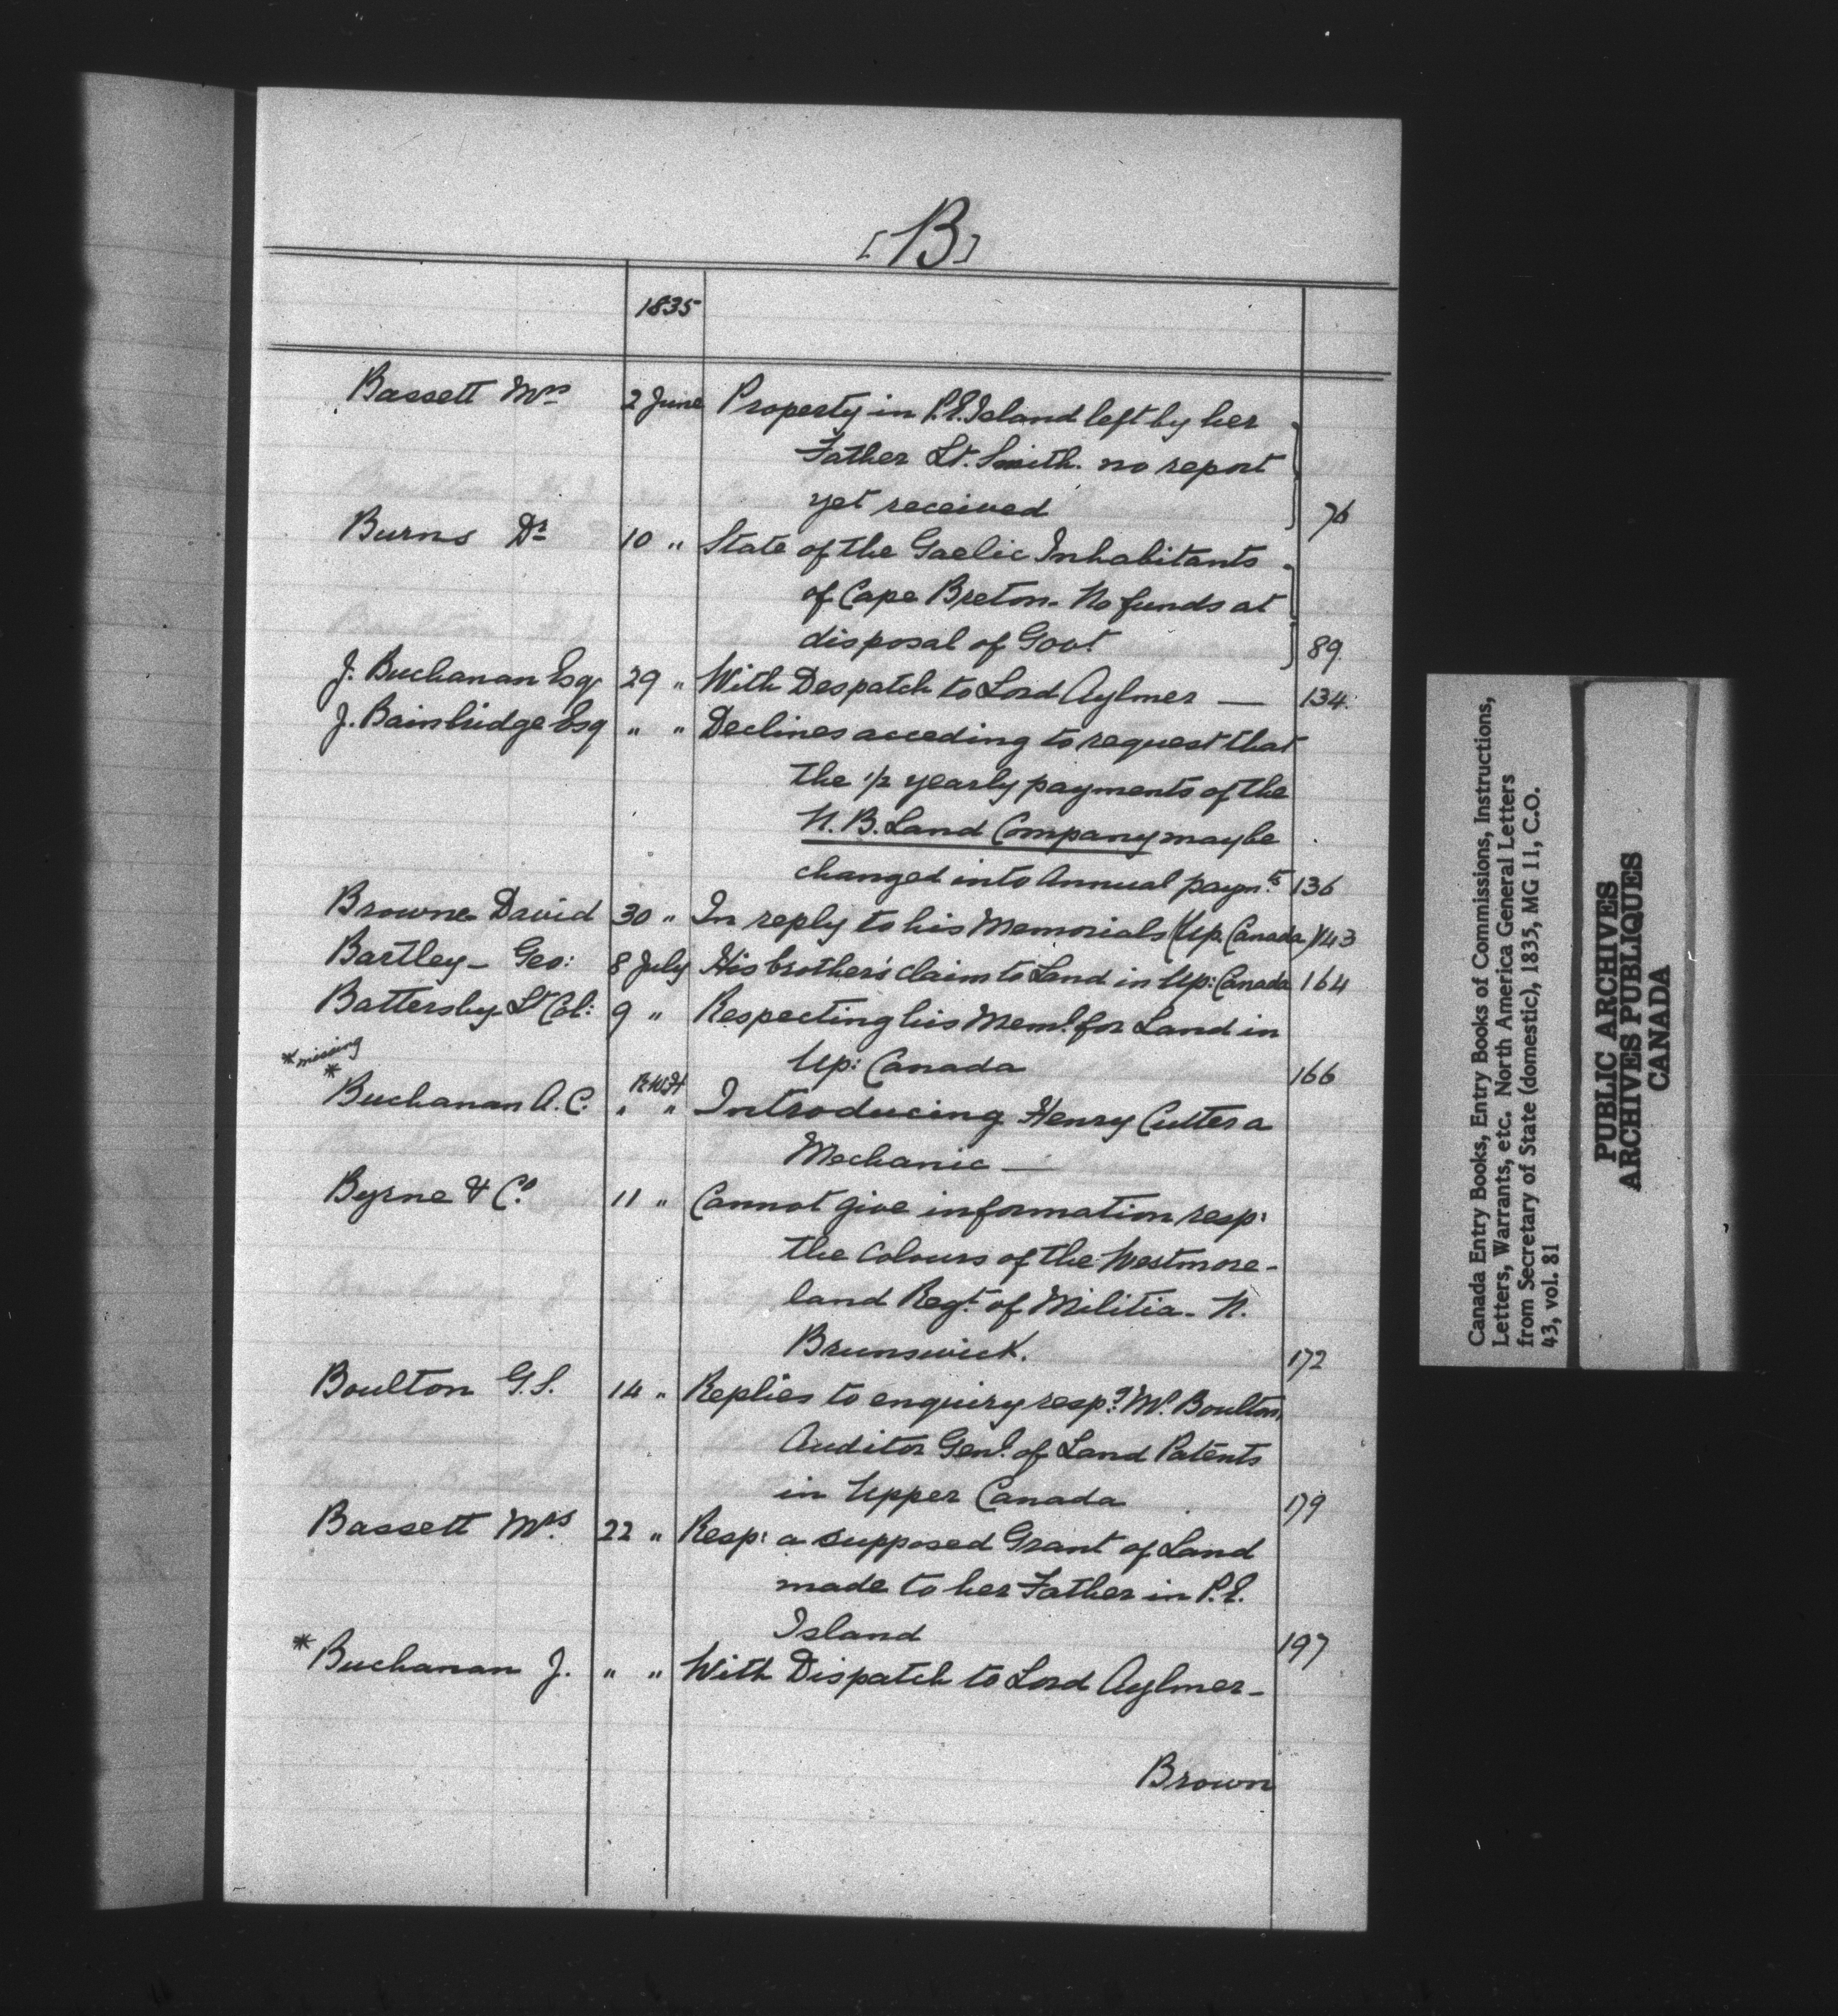 [B]
1835
Bassett Mrs 2 June Property in P.E. Island left by her
Father Lt. Smith. no report
yet received 76
Burns Dr 10 " State of the Gaelic Inhabitants
of Cape Breton. No funds at
disposal of Govt 89.
J. Buchanan Esqr 29 " With Despatch to Lord Aylmer — 134.
J. Bainbridge Esq " " Declines acceding to request that
the 1/2 yearly payments of the
N.B. Land Company may be
changed into Annual paymts 136
Browne David 30 " In reply to his Memorials (Up. Canada) 143
Bartley - Geo: 8 July His brother's claim to Land in Up: Canada 164
Battersby Lt Col: 9 " Respecting his Meml. for Land in
Up: Canada 166
* missing
*
Buchanan A.C. " " R.W.H Introducing Henry Cutter a
Mechanic —
Byrne & Co. 11 " Cannot give information resp:
the Colours of the Westmore-
land Regt. of Militia - N.
Brunswick. 172
Boulton G.S. 14 " Replies to enquiry respg. Mr. Boulton,
Auditor Genl. of Land Patents
in Upper Canada 179
Bassett Mrs. 22 " Resp: a supposed Grant of Land
made to her Father in P.E.
Island 197
* Buchanan J. " " With Dispatch to Lord Aylmer -
Brown
Canada Entry Books, Entry Books of Commissions, Instructions,
Letters, Warrants, etc. North America General Letters
from Secretary of State (domestic), 1835, MG 11, C.O.
43, vol. 81
PUBLIC ARCHIVES
ARCHIVES PUBLIQUES
CANADA